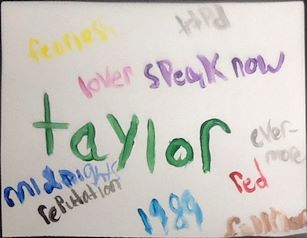 fearless
ttpd
lover speak now
taylor
ever-
more
midnights
red
reputation
1989
folklore